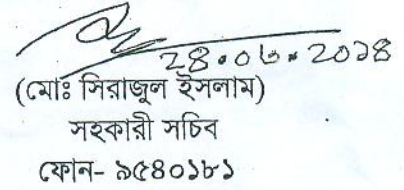 ২৪.০৬.২০১৪
(মোঃ সিরাজুল ইসলাম)
সহকারী সচিব
ফোন- ৯৫৪০১৮১